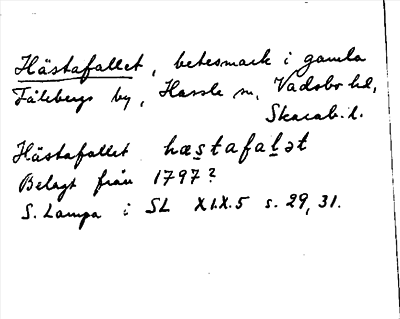 Hästafallet, betesmark i gamla
Fålebergs by, Hassle sn, Vadsbo hd,
Skarab. l.
Hästafallet hæstafaḷət
Belagt från 1797?
S. Lampa i SL XIX.5 s. 29, 31.